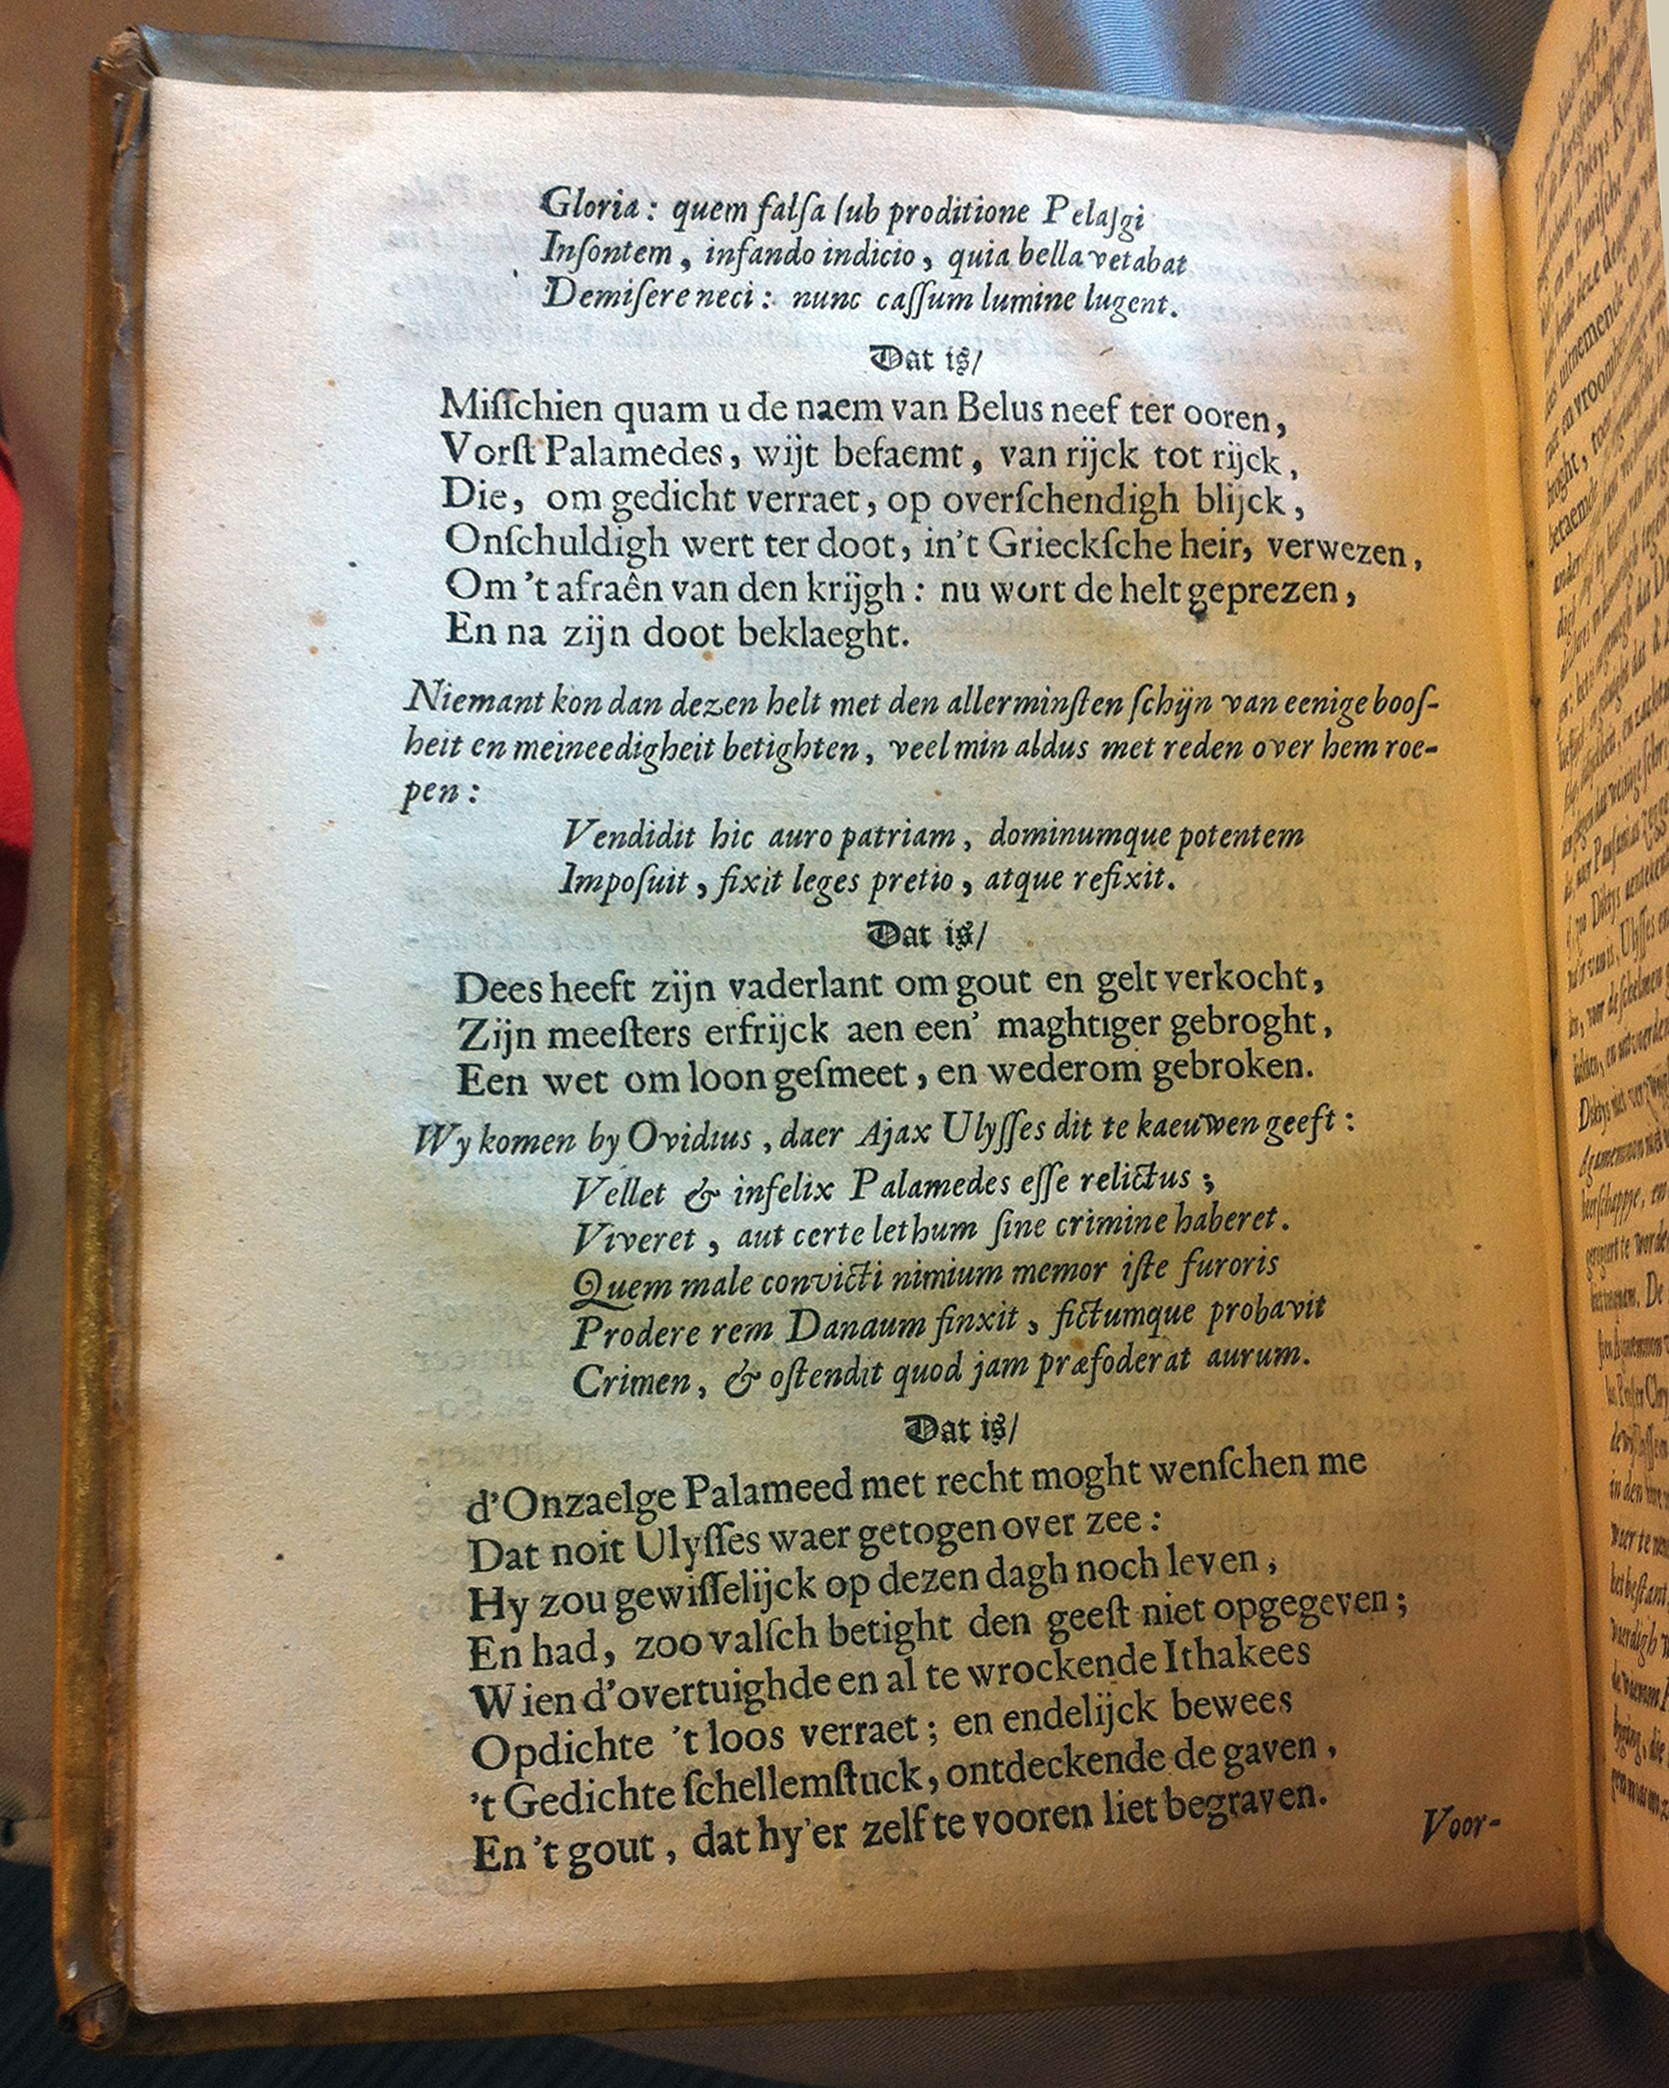 Gloria: quem falſa ſub proditione Pelaſgi
Inſontem, infando indicio, quia bella vetabat
Demiſere neci: nunc caſſum lumine lugent.
Dat is/
Miſſchien quam u de naem van Belus neef ter ooren,
Vorſt Palamedes, wijt befaemt, van rijck tot rijck,
Die, om gedicht verraet, op overſchendigh blijck,
Onſchuldigh wert ter doot, in't Grieckſche heir, verwezen,
Om 't afraên van den krijgh: nu wort de helt geprezen,
En na zijn doot beklaeght.
Niemant kon dan dezen helt met den allerminſten ſchijn van eenige booſ-
heit en meineedigheit betighten, veel min aldus met reden over hem roe-
pen:
Vendidit hic auro patriam, dominumque potentem
Impoſuit, fixit leges pretio, atque refixit.
Dat is/
Dees heeft zijn vaderlant om gout en gelt verkocht,
Zijn meeſters erfrijck aen een' maghtiger gebroght,
Een wet om loon geſmeet, en wederom gebroken.
Wy komen by Ovidius, daer Ajax Ulyſſes dit te kaeuwen geeft:
Vellet & infelix Palamedes eſſe relictus;
Viveret, aut certe lethum ſine crimine haberet.
Quem male convicti nimium memor iſte furoris
Prodere rem Danaum finxit, fictumque probavit
Crimen, & oſtendit quod jam præfoderat aurum.
Dat is/
d'Onzaelge Palameed met recht moght wenſchen me
Dat noit Ulyſſes waer getogen over zee:
Hy zou gewiſſelijck op dezen dagh noch leven,
En had, zoo valſch betight den geeſt niet opgegeven;
Wien d'overtuighde en al te wrockende Ithakees
Opdichte 't loos verraet; en endelijck bewees
't Gedichte ſchellemſtuck, ontdeckende de gaven,
En 't gout, dat hy'er zelf te vooren liet begraven.
Voor-